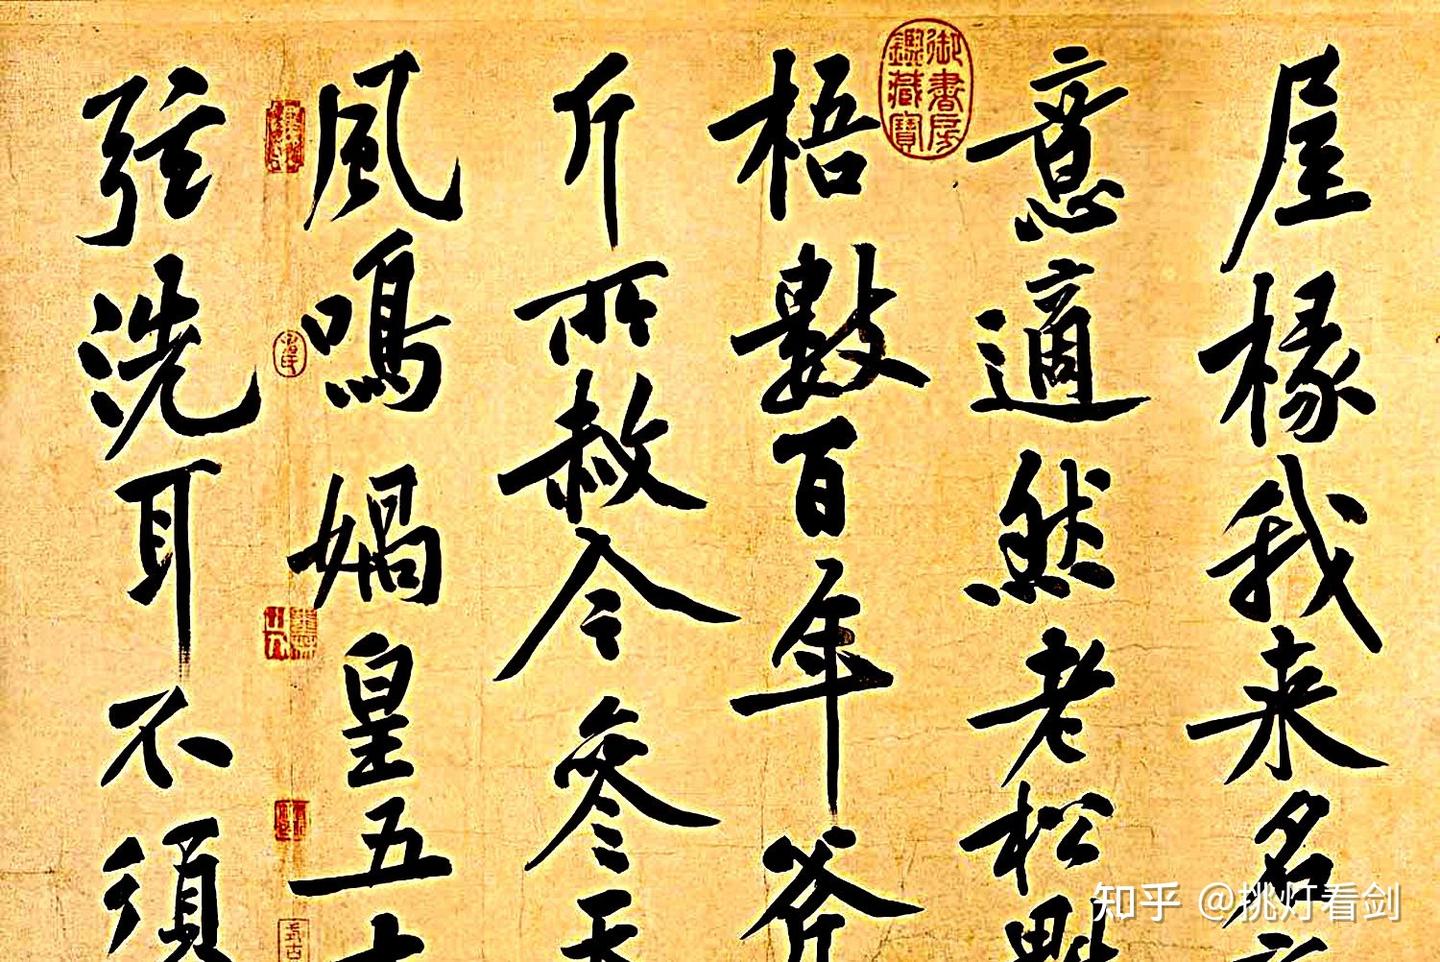 屋椽我来名
意適然老松魁
梧數百年斧
斤所赦今參天
風鳴媧皇五十
弦洗耳不須
御書房
鑑藏寶
知乎 @挑灯看剑